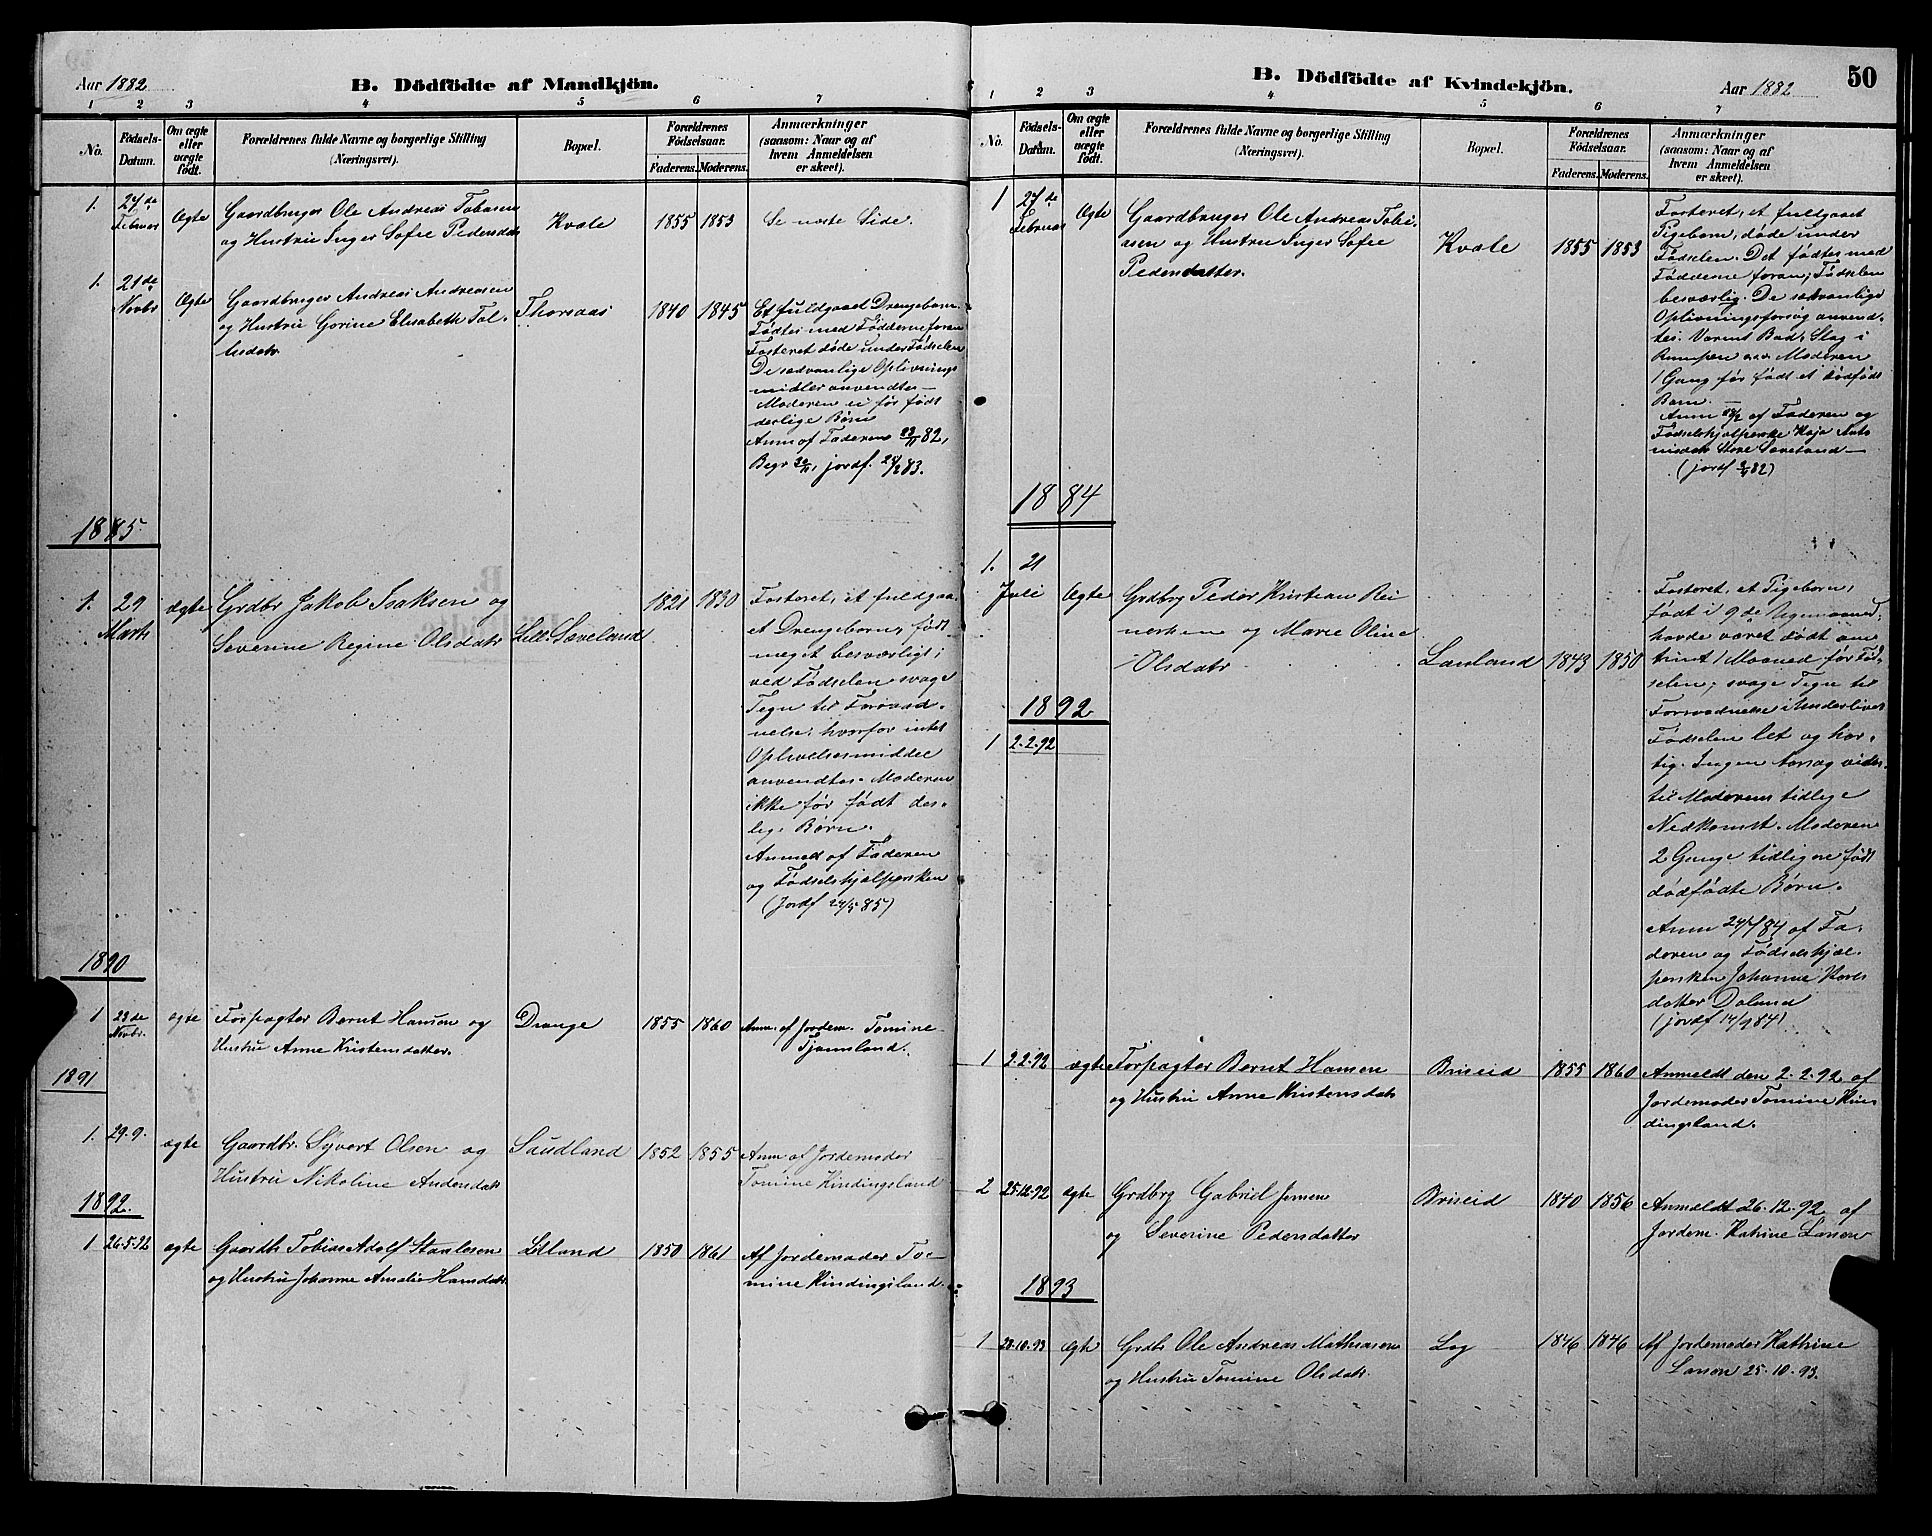 Aar 1882
B. Dödfödte af Mandkjön.
1 2 3 4 5 6 7
No.
Födsels-Datum.
Om ægte eller uægte födt.
Forældrenes fulde Navne og borgerlige Stilling
(Næringsvei).
Bopæl.
Forældrenes Födselsaar.
Faderens. Moderens.
Anmærkninger
(saasom: Naar og af
hvem Anmeldelsen
er skeet).
1. 27de Februar Ægte Gaardbruger Ole Andreas Tobiasen Kvale 1855 1853 Se næste Side.
og Hustru Inger Sofie Pedersdatr
1. 21de Novbr Ægte Gaardbruger Andreas Andreasen Thorsaas 1840 1845 Et fuldgaaet Drengebarn.
og Hustru Gorine Elisabeth Tol-
lisdatr
Fødtes med Fødderne foran
Fosteret døde under Fødselen
De sædvanlige Oplivnings
midler anvendtes—
Moderen ei før født
derlige Børn
Anm af Faderen 82,
Begr jordf. 83.
1885
1. 29 Marts ægte Grdbr Jakob Isaksen og Lille Sæveland 1821 1830 Fosteret, et fuldgaa-
Severine Regine Olsdatr
et Drengebarn, født
meget besværligt;
ved Fødselen svage
Tegn til Forraad-
nelse, hvorfor intet
Oplivelsesmiddel
anvendtes. Moderen
ikke før født des-
lige Børn.
Anmed af Faderen
og Fødselshjælpersken
(Jordf 24/5 85)
1890
1 23de Novbr. ægte Forpagter Bernt Hansen og Drange 1855 1860 Anm. af Jordem. Tomine
Hustru Anne Kristensdatter. Tjomsland.
1891
1. 29.9. ægte Gaardbr. Syvert Olsen og Saudland 1852 1855 Anm af Jordemoder
Hustru Nikoline Andersdatr Tomine Kindingsland
1892.
1 26.5.92 ægte Gaardb Tobias Adolf Staalesen Letland 1850 1861 Af Jordemoder To-
og Hustru Johanne Amalie Hansdatr. mine Kindingsland.
B. Dödfödte af Kvindekjön.
Aar 1882
50
1 2 3 4 5 6 7
No.
Födsels-Datum.
Om ægte eller uægte födt.
Forældrenes fulde Navne og borgerlige Stilling
(Næringsvei).
Bopæl.
Forældrenes Födselsaar.
Faderens. Moderens.
Anmærkninger
(saasom: Naar og af
hvem Anmeldelsen
er skeet).
1 27de Februar Ægte Gaardbruger Ole Andreas Tobi- Kvale 1855 1853 Fosteret, et fuldgaaet
asen og Hustru Inger Sofie
Pedersdatter.
Pigebarn, døde under
Fødselen. Det fødtes med
Fødderne foran; Fødselen
besværlig. De sædvanlige
Oplivningsforsøg anvend-
tes. Varmt Bad, Slag i
Rumpen Moderen
1 Gang før født et dødfødt
Barn.—
Anm af Faderen og
Fødselshjælperske Kaja
Store Sæveland—
(jordf 82)
1884
1. 21 Juli Ægte Grdbrg Peder Kristian Rei Lauland 1843 1850 Fosteret, et Pigebarn,
nertsen og Marie Oline
Olsdatr
født i 9de
havde været dødt om
trint 1 Maaned før Fød-
selen; svage Tegn til
Forraadnelse i Underlivet
Fødselen let og hur-
tig. Ingen Aarsag vides
til Moderens tidlige
Nedkomst. Moderen
2 Gange tidligere født
dødfødte Børn.
Anm 24/7 84 af Fa-
deren og Fødselshjæl-
persken Johanne
datter
(jordf 14/9 84)
1892
1 2.2.92
1 2.2.92 ægte Forpagter Bernt Hansen Briseid 1855 1860 Anmeldt den 2.2.92 af
og Hustru Anne Kristensdatr Jordemoder Tomine Kin
dingsland.
2 25.12.92 ægte Grdbrg Gabriel Jensen Briseid 1840 1856 Anmeldt 26.12.92 af
og Severine Pedersdatter Jordem. Katrine Larsen
1893
1 20.10.93 ægte Grdb Ole Andreas Mathiasen Log 1846 1846 Af Jordemoder Kathrine
og Hustru Tomine Olsdatr. Larsen 25.10.93.